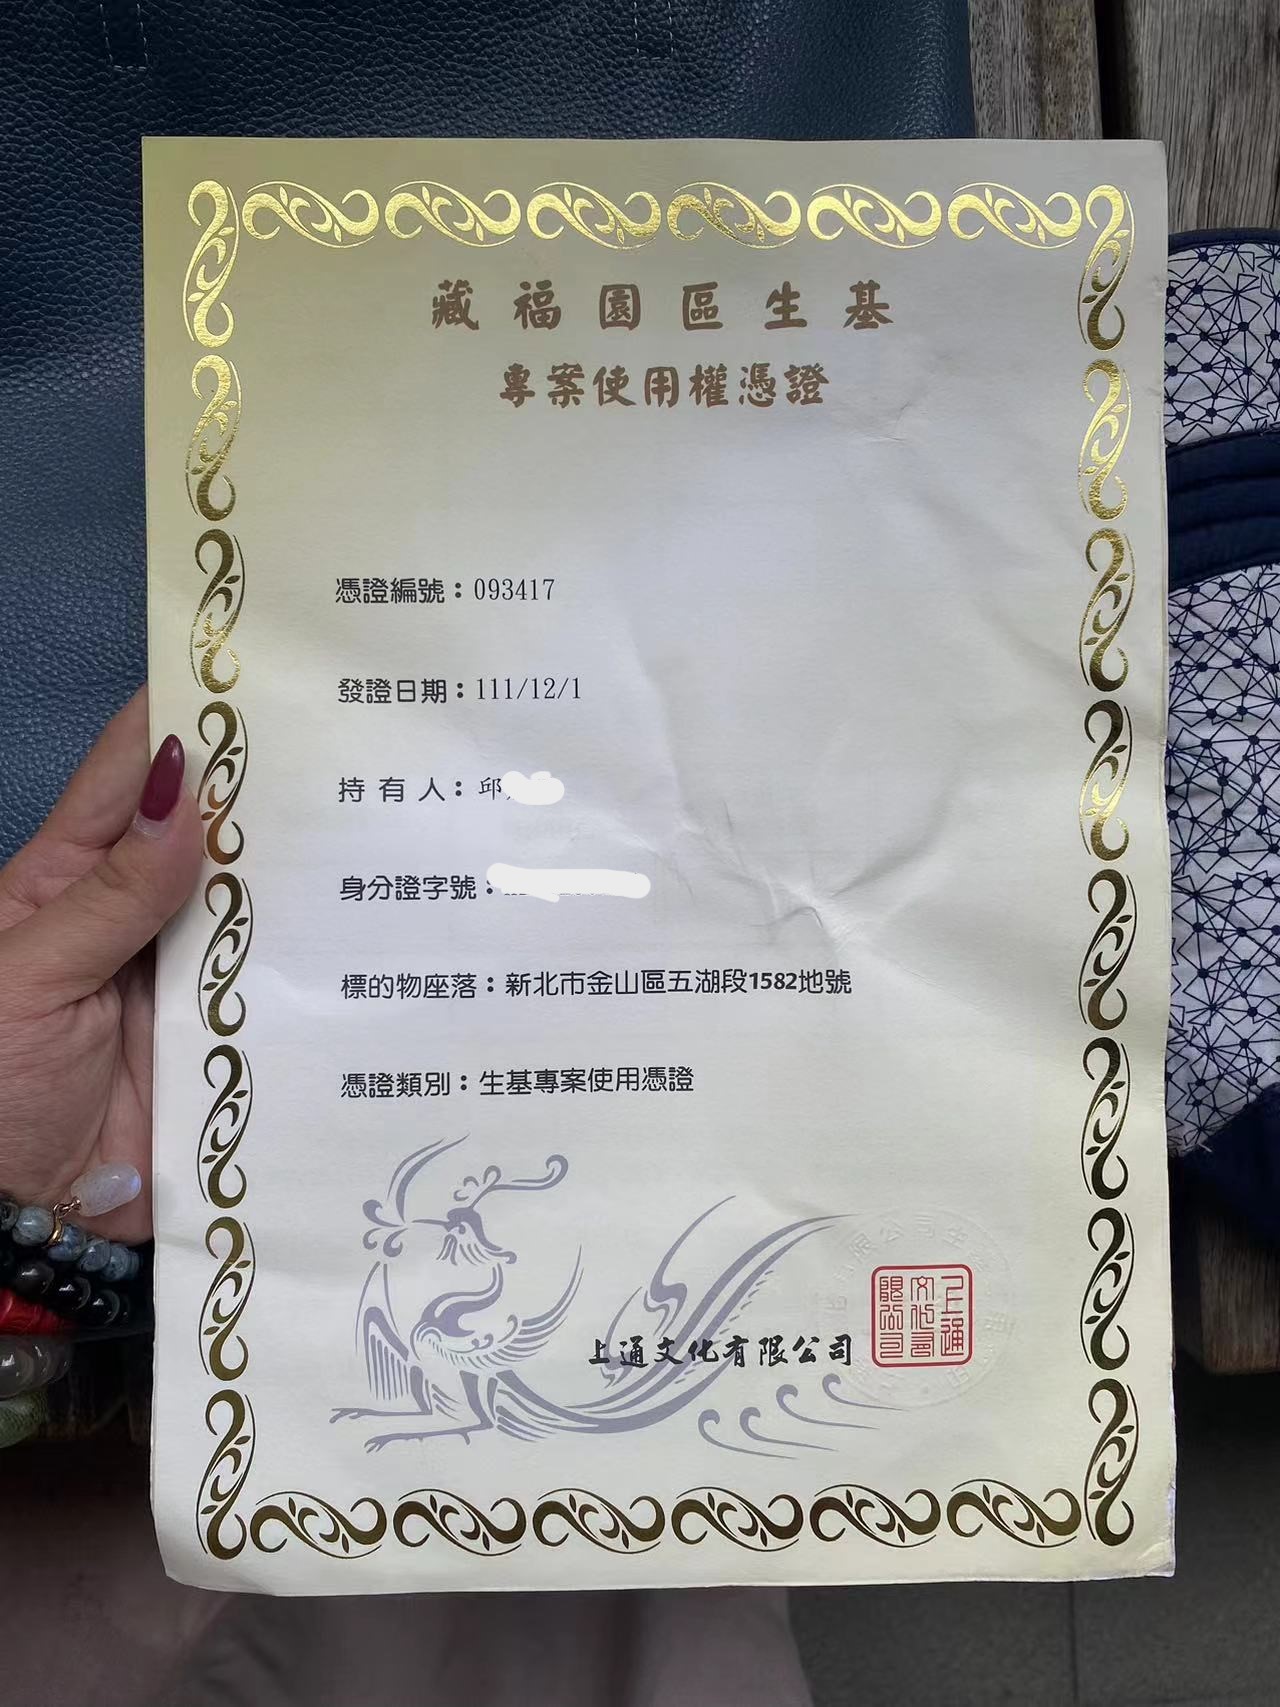 藏福園區生基
專案使用權憑證
憑證編號：093417
發證日期：111/12/1
持有人：邱
身分證字號：
標的物座落：新北市金山區五湖段1582地號
憑證類別：生基專案使用憑證
上通文化有限公司
上通文化有限公司